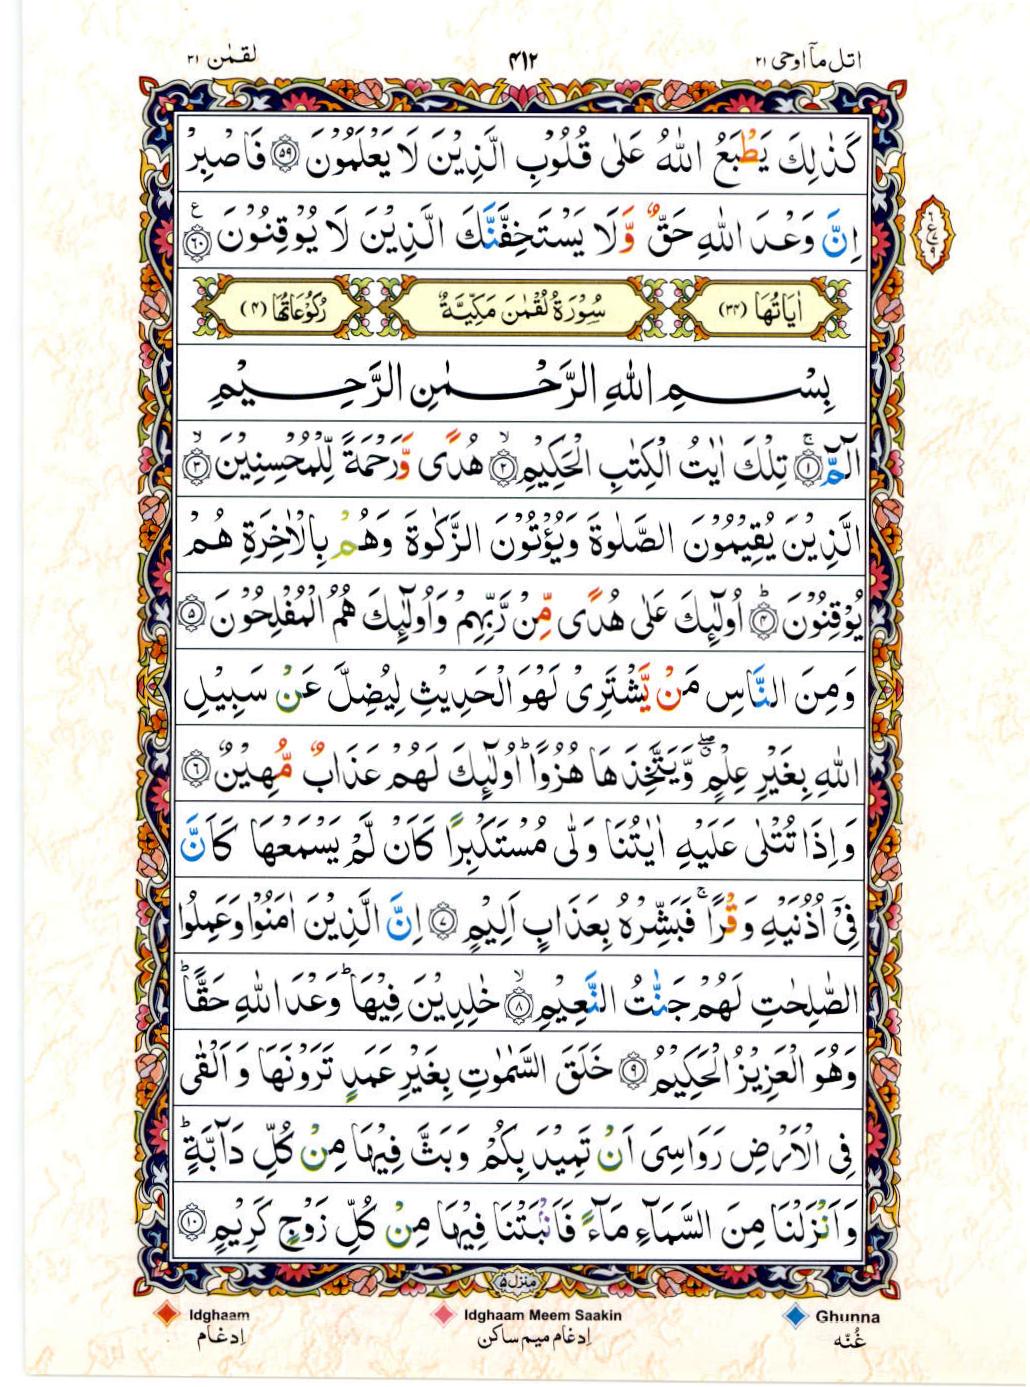 اتل مآ اوحی ۲۱
۴۱۲
لقمٰن ۳۱
كَذٰلِكَ يَطْبَعُ اللّٰهُ عَلٰى قُلُوْبِ الَّذِيْنَ لَا يَعْلَمُوْنَ ۝۵۹ فَاصْبِرْ
اِنَّ وَعْدَ اللّٰهِ حَقٌّ وَّلَا يَسْتَخِفَّنَّكَ الَّذِيْنَ لَا يُوْقِنُوْنَ ۝۶۰ ع
اٰيَاتُهَا (۳۴) سُوْرَةُ لُقْمٰنَ مَكِّيَّةٌ رُكُوْعَاتُهَا (۴)
بِسْمِ اللّٰهِ الرَّحْمٰنِ الرَّحِيْمِ
الٓمّٓ ۚ۝۱ تِلْكَ اٰيٰتُ الْكِتٰبِ الْحَكِيْمِ ۙ۝۲ هُدًى وَّرَحْمَةً لِّلْمُحْسِنِيْنَ ۙ۝۳
الَّذِيْنَ يُقِيْمُوْنَ الصَّلٰوةَ وَيُؤْتُوْنَ الزَّكٰوةَ وَهُمْ بِالْاٰخِرَةِ هُمْ
يُوْقِنُوْنَ ؕ۝۴ اُولٰٓئِكَ عَلٰى هُدًى مِّنْ رَّبِّهِمْ وَاُولٰٓئِكَ هُمُ الْمُفْلِحُوْنَ ۝۵
وَمِنَ النَّاسِ مَنْ يَّشْتَرِىْ لَهْوَ الْحَدِيْثِ لِيُضِلَّ عَنْ سَبِيْلِ
اللّٰهِ بِغَيْرِ عِلْمٍ ۖ وَّيَتَّخِذَهَا هُزُوًا ؕ اُولٰٓئِكَ لَهُمْ عَذَابٌ مُّهِيْنٌ ۝۶
وَاِذَا تُتْلٰى عَلَيْهِ اٰيٰتُنَا وَلّٰى مُسْتَكْبِرًا كَاَنْ لَّمْ يَسْمَعْهَا كَاَنَّ
فِىْٓ اُذُنَيْهِ وَقْرًا ۚ فَبَشِّرْهُ بِعَذَابٍ اَلِيْمٍ ۝۷ اِنَّ الَّذِيْنَ اٰمَنُوْا وَعَمِلُوا
الصّٰلِحٰتِ لَهُمْ جَنّٰتُ النَّعِيْمِ ۙ۝۸ خٰلِدِيْنَ فِيْهَا ؕ وَعْدَ اللّٰهِ حَقًّا ؕ
وَهُوَ الْعَزِيْزُ الْحَكِيْمُ ۝۹ خَلَقَ السَّمٰوٰتِ بِغَيْرِ عَمَدٍ تَرَوْنَهَا وَاَلْقٰى
فِى الْاَرْضِ رَوَاسِىَ اَنْ تَمِيْدَ بِكُمْ وَبَثَّ فِيْهَا مِنْ كُلِّ دَآبَّةٍ ؕ
وَاَنْزَلْنَا مِنَ السَّمَآءِ مَآءً فَاَنْۢبَتْنَا فِيْهَا مِنْ كُلِّ زَوْجٍ كَرِيْمٍ ۝۱۰
منزل ۵
Idghaam Idghaam Meem Saakin Ghunna
اِدغام اِدغام میم ساکن غُنّه